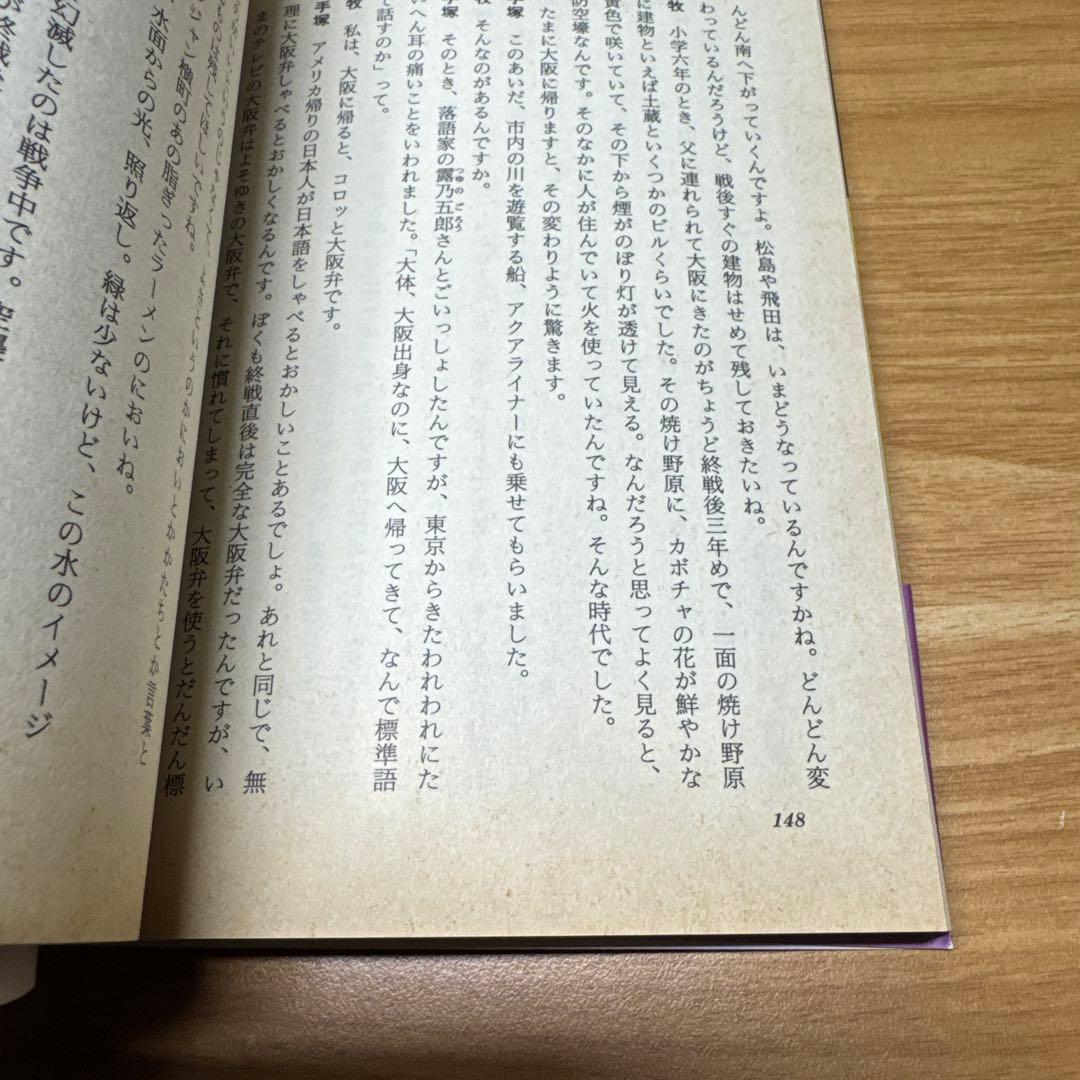 んどん南へ下がっていくんですよ。松島や飛田は、いまどうなっているんですかね。どんどん変
わっているんだろうけど、戦後すぐの建物はせめて残しておきたいね。
牧 小学六年のとき、父に連れられて大阪にきたのがちょうど終戦後三年めで、一面の焼け野原
に建物といえば土蔵といくつかのビルくらいでした。その焼け野原に、カボチャの花が鮮やかな
黄色で咲いていて、その下から煙がのぼり灯が透けて見える。なんだろうと思ってよく見ると、
防空壕なんです。そのなかに人が住んでいて火を使っていたんですね。そんな時代でした。
たまに大阪に帰りますと、その変わりように驚きます。
手塚 このあいだ、市内の川を遊覧する船、アクアライナーにも乗せてもらいました。
牧 そんなのがあるんですか。
手塚 そのとき、落語家の露乃五郎さんとごいっしょしたんですが、東京からきたわれわれにた
いへん耳の痛いことをいわれました。「大体、大阪出身なのに、大阪へ帰ってきて、なんで標準語
で話すのか」って。
つゆのごろう
牧 私は、大阪に帰ると、コロッと大阪弁です。
手塚 アメリカ帰りの日本人が日本語をしゃべるとおかしいことあるでしょ。あれと同じで、無
理に大阪弁しゃべるとおかしくなるんです。ぼくも終戦直後は完全な大阪弁だったんですが、い
まのテレビの大阪弁はよそゆきの大阪弁で、それに慣れてしまって、大阪弁を使うとだんだん標
148
というのかにおいとかかたちとか言葉と
は残してほしいですね。
ジャン横町のあの脂ぎったラーメンのにおいね。
水面からの光、照り返し。緑は少ないけど、この水のイメージ
幻滅したのは戦争中です。空襲
が終戦